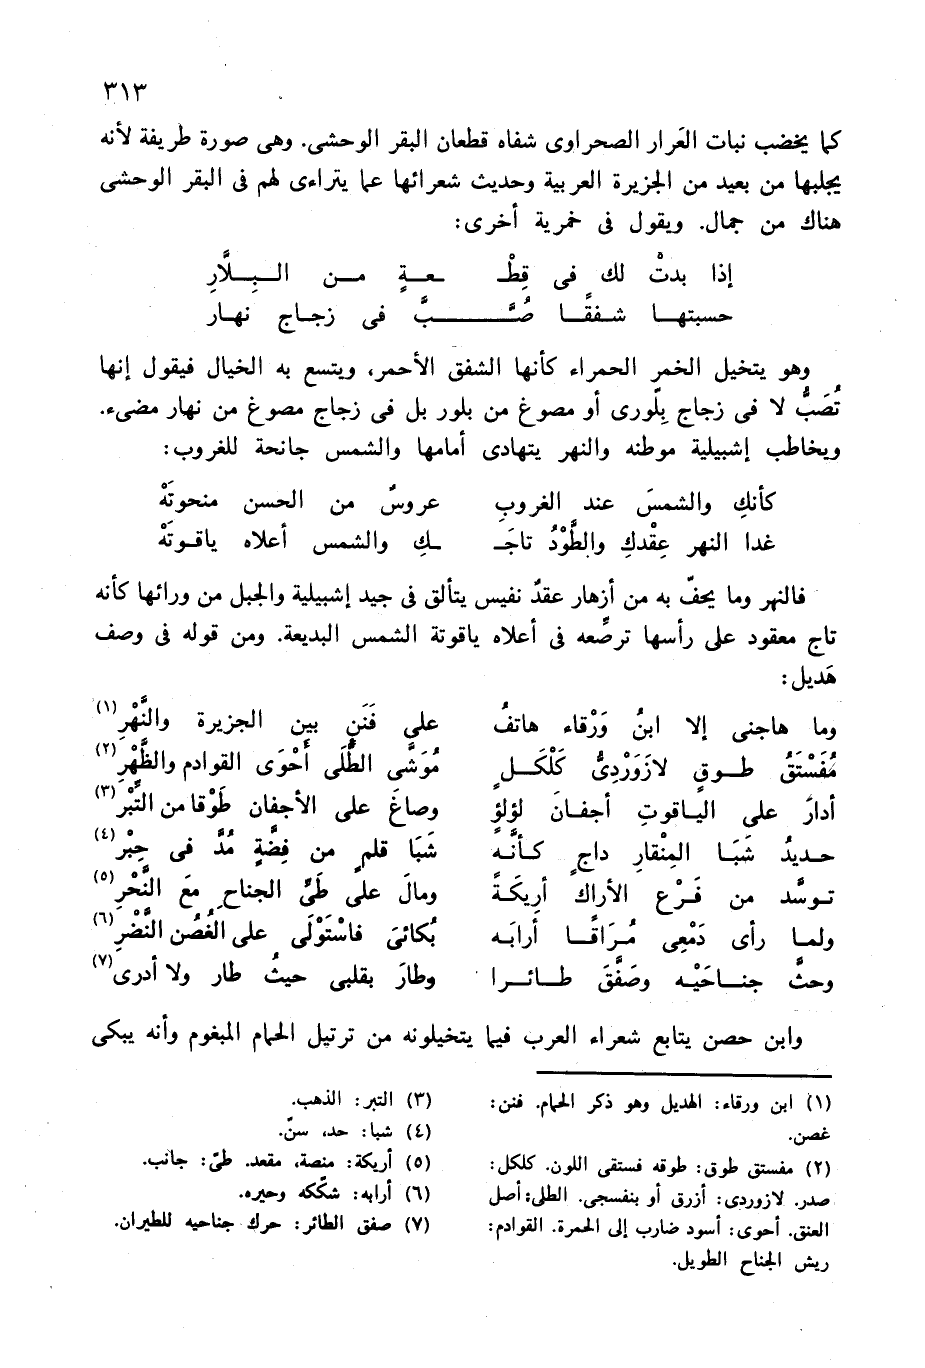 ٣١٣
كما يخضب نبات العَرار الصحراوى شفاه قطعان البقر الوحشى. وهى صورة طريفة لأنه
يجلبها من بعيد من الجزيرة العربية وحديث شعرائها عما يتراءى لهم فى البقر الوحشى
هناك من جمال. ويقول فى خمرية أخرى:
إذا بدتْ لك فى قِطْـ ـعـةٍ مـن الـبِـلَّارِ
حسبتهـا شـفقًـا صُـبَّ فى زجـاج نهـار
وهو يتخيل الخمر الحمراء كأنها الشفق الأحمر، ويتسع به الخيال فيقول إنها
تُصَبُّ لا فى زجاج بِلّورى أو مصوغ من بلور بل فى زجاج مصوغ من نهار مضىء.
ويخاطب إشبيلية موطنه والنهر يتهادى أمامها والشمس جانحة للغروب:
كأنكِ والشمسَ عند الغروبِ عروسٌ من الحسن منحوتَهْ
غدا النهر عِقْدكِ والطَّوْدُ تاجَـ ـكِ والشمس أعلاه ياقـوتَهْ
فالنهر وما يحفّ به من أزهار عقدٌ نفيس يتألق فى جيد إشبيلية والجبل من ورائها كأنه
تاج معقود على رأسها ترصِّعه فى أعلاه ياقوتة الشمس البديعة. ومن قوله فى وصف
هَديل:
وما هاجنى إلا ابنُ وَرْقاء هاتفُ على فَنَنٍ بين الجزيرة والنَّهْرِ(١)
مُفَسْتَقُ طـوقٍ لازَوَرْدِىُّ كَلْكَـلٍ مُوَشَّى الطُّلَى أَحْوَى القوادم والظَّهْرِ(٢)
أدارَ على اليـاقوتِ أجفـانَ لؤلؤٍ وصاغَ على الأجفان طَوْقا من التِّبْرِ(٣)
حـديدُ شَبَـا المِنْقارِ داجٍ كـأنَّـه شَبَا قلمٍ من فِضَّةٍ مُدَّ فى حِبْرِ(٤)
تـوسَّد من فَـرْع الأراك أرِيكَـةً ومالَ على طَىِّ الجناحِ مَعَ النَّحْرِ(٥)
ولمـا رأى دَمْعِى مُـرَاقًـا أرابَـه بُكائىَ فاسْتَوْلَى على الغُصُن النَّضْرِ(٦)
وحثَّ جنـاحَيْـه وصَفَّقَ طـائـرا وطارَ بقلبى حيثُ طار ولا أدرى(٧)
وابن حصن يتابع شعراء العرب فيما يتخيلونه من ترتيل الحمام المبغوم وأنه يبكى
(١) ابن ورقاء: الهديل وهو ذكر الحمام. فنن:
غصن.
(٢) مفستق طوق: طوقه فستقى اللون. كلكل:
صدر. لازوردى: أزرق أو بنفسجى. الطلى: أصل
العنق. أحوى: أسود ضارب إلى الحمرة. القوادم:
ريش الجناح الطويل.
(٣) التبر: الذهب.
(٤) شبا: حد، سنّ.
(٥) أريكة: منصة، مقعد. طىّ: جانب.
(٦) أرابه: شكّكه وحيره.
(٧) صفق الطائر: حرك جناحيه للطيران.